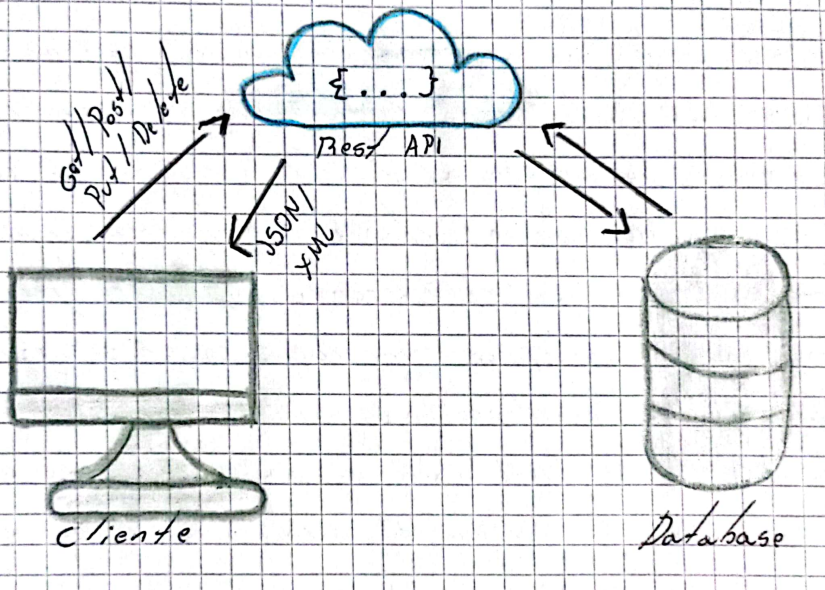 {...}
Rest API
Get/ Post/
Put/ Delete
JSON/
XML
Cliente
Database